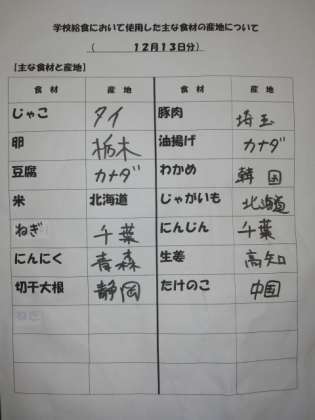 学校給食において使用した主な食材の産地について
（ 12月13日分）
【主な食材と産地】
食材 産地 食材 産地
じゃこ タイ 豚肉 埼玉
卵 栃木 油揚げ カナダ
豆腐 カナダ わかめ 韓国
米 北海道 じゃがいも 北海道
ねぎ 千葉 にんじん 千葉
にんにく 青森 生姜 高知
切干大根 静岡 たけのこ 中国
ねぎ